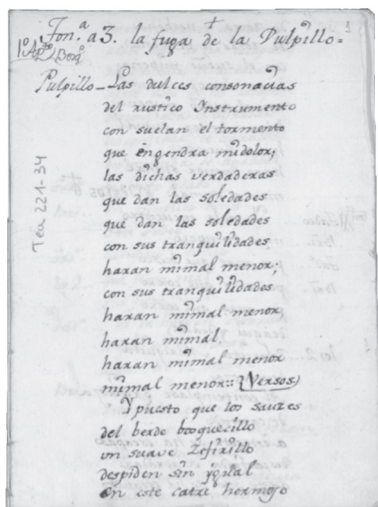 Ton.ª a 3. la fuga de la Pulpillo =
1º Apto Bonª
Pulpillo — Las dulces consonacias
del rustico Instrumento
con suelan el tormento
que engendra mi dolor;
las dichas verdaderas
que dan las soledades
que dan las soledades
con sus tranquilidades
haran mi mal menor;
con sus tranquilidades
haran mi mal menor,
haran mi mal,
haran mi mal menor
mi mal menor:: (Versos)
Y puesto que los sauzes
del berde bosquecillo
un suave Zefirillo
despiden sin ygual
en este catre hermoso
Tea 221-34